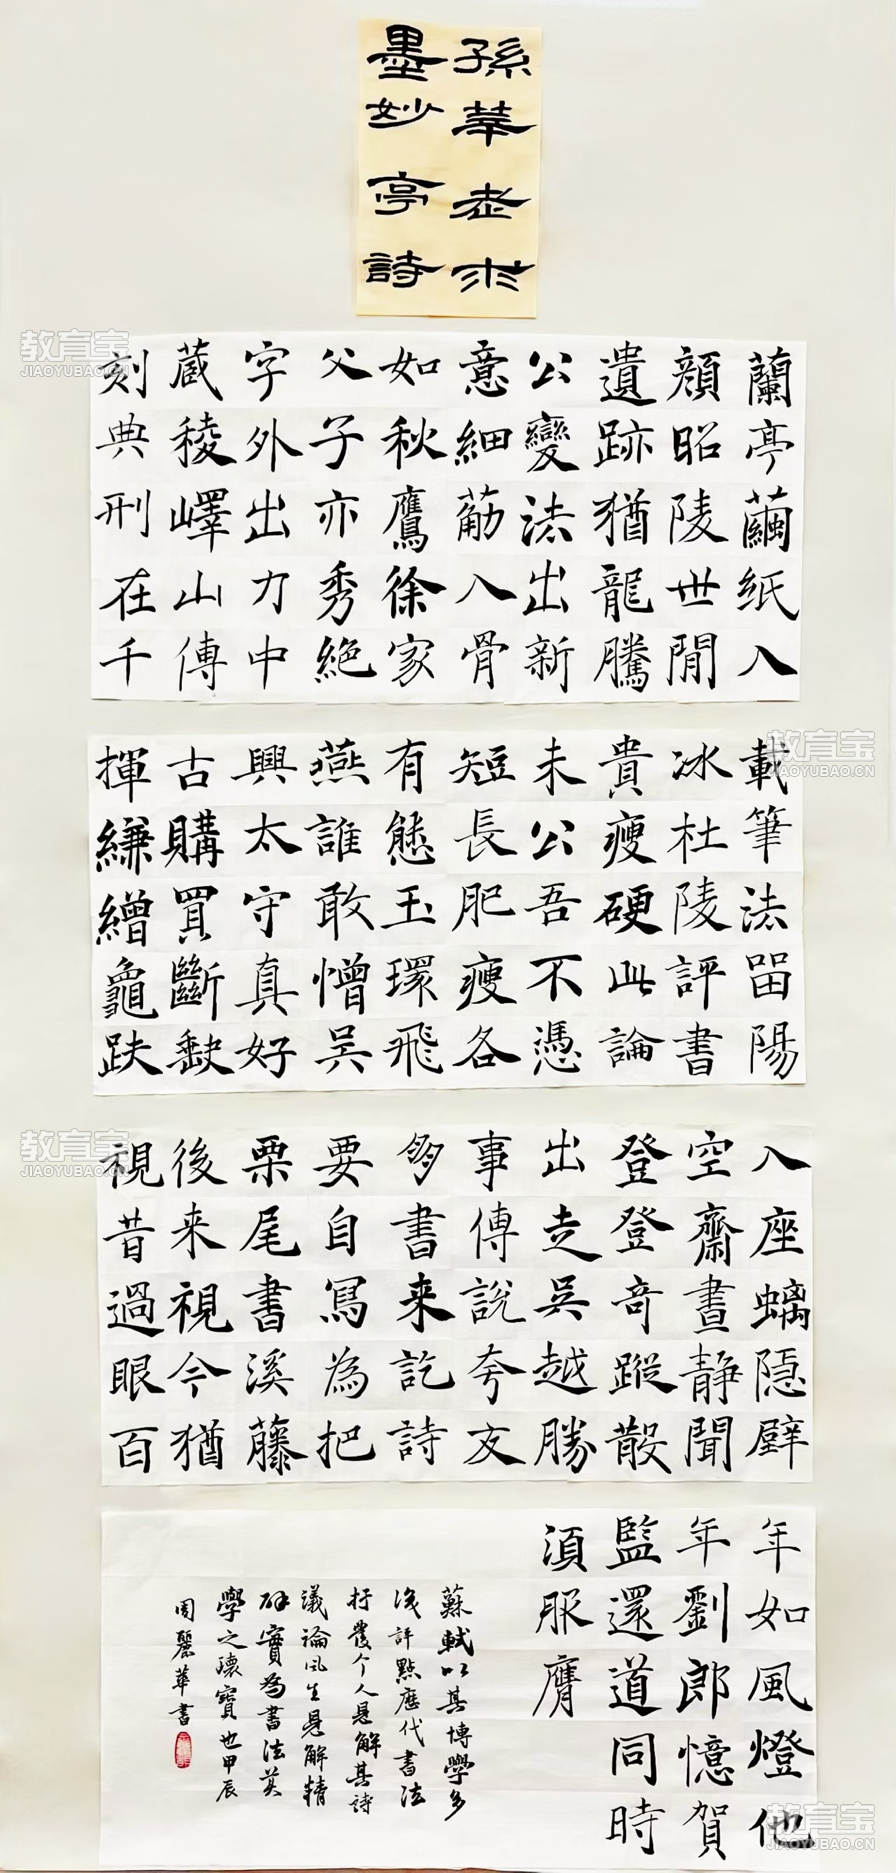 孫莘老求
墨妙亭詩
蘭亭繭紙入
顏昭陵世間
遺跡猶龍騰
公變法出新
意細荕入骨
如秋鷹徐家
父子亦秀絕
字外出力中
蔵稜嶧山傳
刻典刑在千
載筆法畱陽
冰杜陵評書
貴瘦硬此論
未公吾不憑
短長肥瘦各
有態玉環飛
燕誰敢憎吳
興太守真好
古購買斷缺
揮縑繒龜趺
入座螭隱壁
空齋晝静聞
登登奇蹤散
出走吳越勝
事傳說夸友
多書来訖詩
要自寫為把
栗尾書溪藤
後来視今猶
視昔過眼百
年如風燈他
年劉郎憶賀
監還道同時
須服膺
蘇軾以其博學多
識評點歷代書法
抒發个人見解其詩
議論風生見解精
研實為書法美
學之瓌寶也甲辰
周麗華書
教育宝
JIAOYUBAO.CN
教育宝
JIAOYUBAO.CN
教育宝
JIAOYUBAO.CN
教育宝
JIAOYUBAO.CN